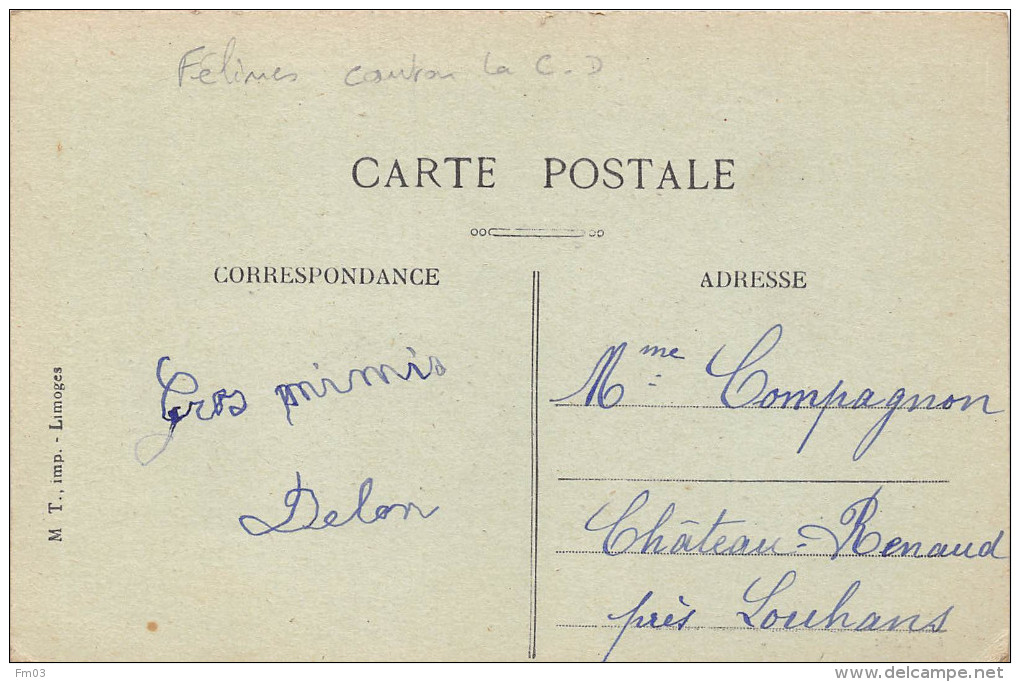 Félines canton La C.D
CARTE POSTALE
CORRESPONDANCE
Gros mimis
Delon
M T., imp. - Limoges
ADRESSE
Mme Compagnon
Château-Renaud
près Louhans
Fm03
www.delcampe.net